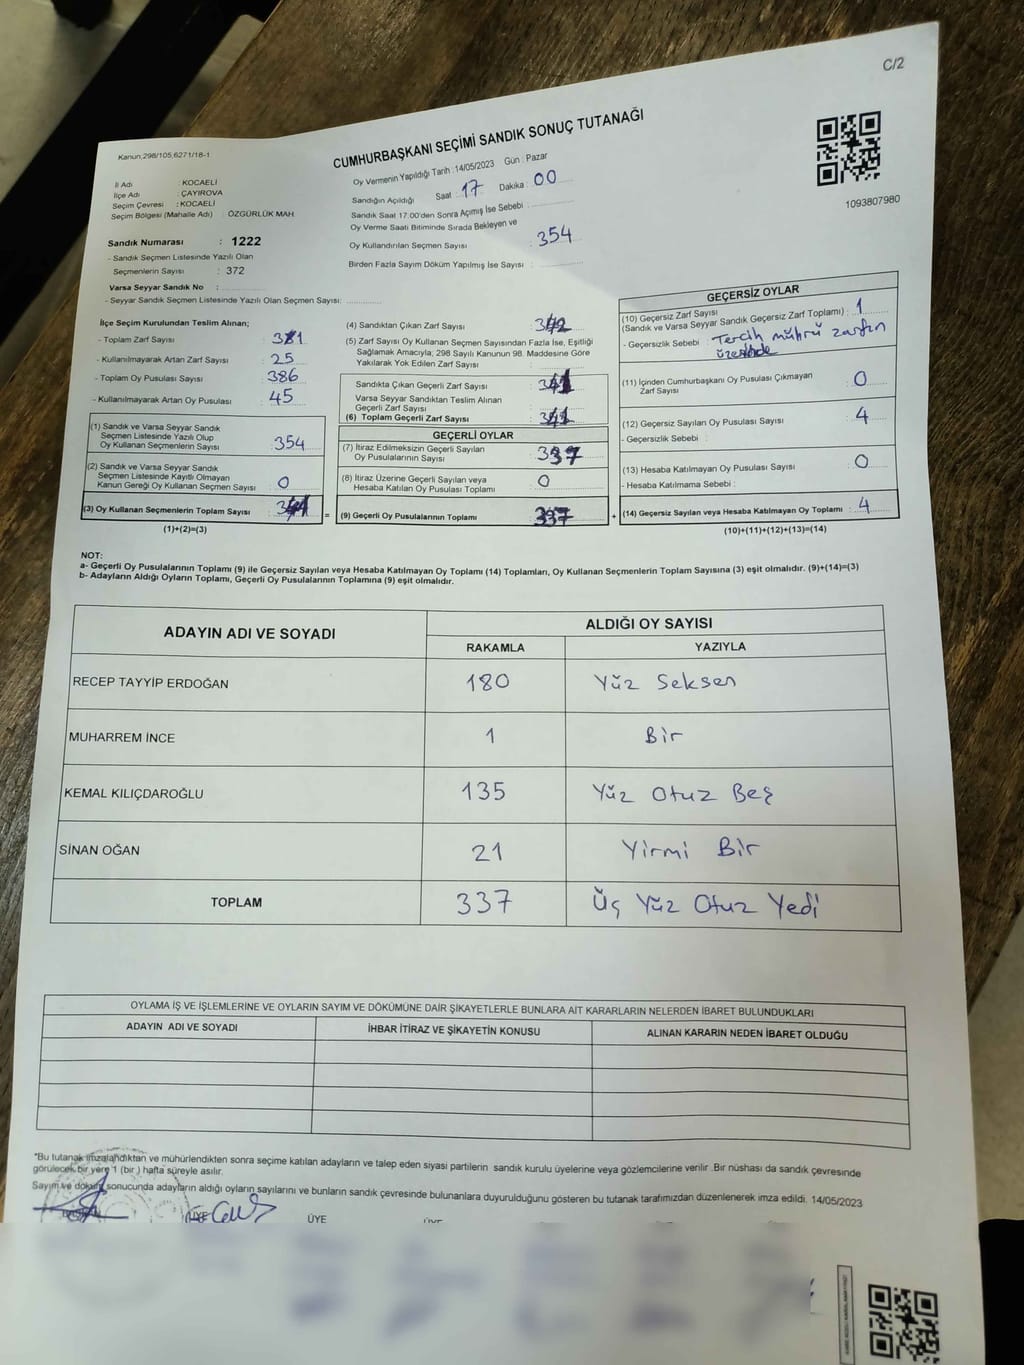 C/2
Kanun,298/105,6271/18-1
CUMHURBAŞKANI SEÇİMİ SANDIK SONUÇ TUTANAĞI
1093807980
İl Adı : KOCAELİ
İlçe Adı : ÇAYIROVA
Seçim Çevresi : KOCAELİ
Seçim Bölgesi (Mahalle Adı) : ÖZGÜRLÜK MAH
Sandık Numarası : 1222
- Sandık Seçmen Listesinde Yazılı Olan
Seçmenlerin Sayısı : 372
Varsa Seyyar Sandık No :
- Seyyar Sandık Seçmen Listesinde Yazılı Olan Seçmen Sayısı:
Oy Vermenin Yapıldığı Tarih :14/05/2023 Gün : Pazar
Sandığın Açıldığı Saat : 17 Dakika : 00
Sandık Saat 17.00'den Sonra Açılmış İse Sebebi :
Oy Verme Saati Bitiminde Sırada Bekleyen ve
Oy Kullandırılan Seçmen Sayısı : 354
Birden Fazla Sayım Döküm Yapılmış İse Sayısı :
İlçe Seçim Kurulundan Teslim Alınan;
- Toplam Zarf Sayısı : 381
- Kullanılmayarak Artan Zarf Sayısı : 25
- Toplam Oy Pusulası Sayısı : 386
- Kullanılmayarak Artan Oy Pusulası : 45
(1) Sandık ve Varsa Seyyar Sandık
Seçmen Listesinde Yazılı Olup
Oy Kullanan Seçmenlerin Sayısı : 354
(2) Sandık ve Varsa Seyyar Sandık
Seçmen Listesinde Kayıtlı Olmayan
Kanun Gereği Oy Kullanan Seçmen Sayısı : 0
(3) Oy Kullanan Seçmenlerin Toplam Sayısı :
(1)+(2)=(3)
(4) Sandıktan Çıkan Zarf Sayısı : 342
(5) Zarf Sayısı Oy Kullanan Seçmen Sayısından Fazla İse, Eşitliği
Sağlamak Amacıyla; 298 Sayılı Kanunun 98. Maddesine Göre
Yakılarak Yok Edilen Zarf Sayısı :
Sandıkta Çıkan Geçerli Zarf Sayısı : 341
Varsa Seyyar Sandıktan Teslim Alınan
Geçerli Zarf Sayısı :
(6) Toplam Geçerli Zarf Sayısı : 341
GEÇERLİ OYLAR
(7) İtiraz Edilmeksizin Geçerli Sayılan
Oy Pusulalarının Sayısı : 337
(8) İtiraz Üzerine Geçerli Sayılan veya
Hesaba Katılan Oy Pusulası Toplamı : 0
= (9) Geçerli Oy Pusulalarının Toplamı : 337 +
GEÇERSİZ OYLAR
(10) Geçersiz Zarf Sayısı
(Sandık ve Varsa Seyyar Sandık Geçersiz Zarf Toplamı) : 1
- Geçersizlik Sebebi : Tercih mührü zarfın
üzerinde
(11) İçinden Cumhurbaşkanı Oy Pusulası Çıkmayan
Zarf Sayısı : 0
(12) Geçersiz Sayılan Oy Pusulası Sayısı : 4
- Geçersizlik Sebebi :
(13) Hesaba Katılmayan Oy Pusulası Sayısı : 0
- Hesaba Katılmama Sebebi :
(14) Geçersiz Sayılan veya Hesaba Katılmayan Oy Toplamı : 4
(10)+(11)+(12)+(13)=(14)
NOT:
a- Geçerli Oy Pusulalarının Toplamı (9) ile Geçersiz Sayılan veya Hesaba Katılmayan Oy Toplamı (14) Toplamları, Oy Kullanan Seçmenlerin Toplam Sayısına (3) eşit olmalıdır. (9)+(14)=(3)
b- Adayların Aldığı Oyların Toplamı, Geçerli Oy Pusulalarının Toplamına (9) eşit olmalıdır.
ADAYIN ADI VE SOYADI ALDIĞI OY SAYISI
RAKAMLA YAZIYLA
RECEP TAYYİP ERDOĞAN 180 Yüz Seksen
MUHARREM İNCE 1 Bir
KEMAL KILIÇDAROĞLU 135 Yüz Otuz Beş
SİNAN OĞAN 21 Yirmi Bir
TOPLAM 337 Üç Yüz Otuz Yedi
OYLAMA İŞ VE İŞLEMLERİNE VE OYLARIN SAYIM VE DÖKÜMÜNE DAİR ŞİKAYETLERLE BUNLARA AİT KARARLARIN NELERDEN İBARET BULUNDUKLARI
ADAYIN ADI VE SOYADI İHBAR İTİRAZ VE ŞİKAYETİN KONUSU ALINAN KARARIN NEDEN İBARET OLDUĞU
"Bu tutanak imzalandıktan ve mühürlendikten sonra seçime katılan adayların ve talep eden siyasi partilerin sandık kurulu üyelerine veya gözlemcilerine verilir .Bir nüshası da sandık çevresinde
görülecek bir yere 1 (bir ) hafta süreyle asılır.
Sayım ve döküm sonucunda adayların aldığı oyların sayılarını ve bunların sandık çevresinde bulunanlara duyurulduğunu gösteren bu tutanak tarafımızdan düzenlenerek imza edildi. 14/05/2023
ÜYE ÜYE